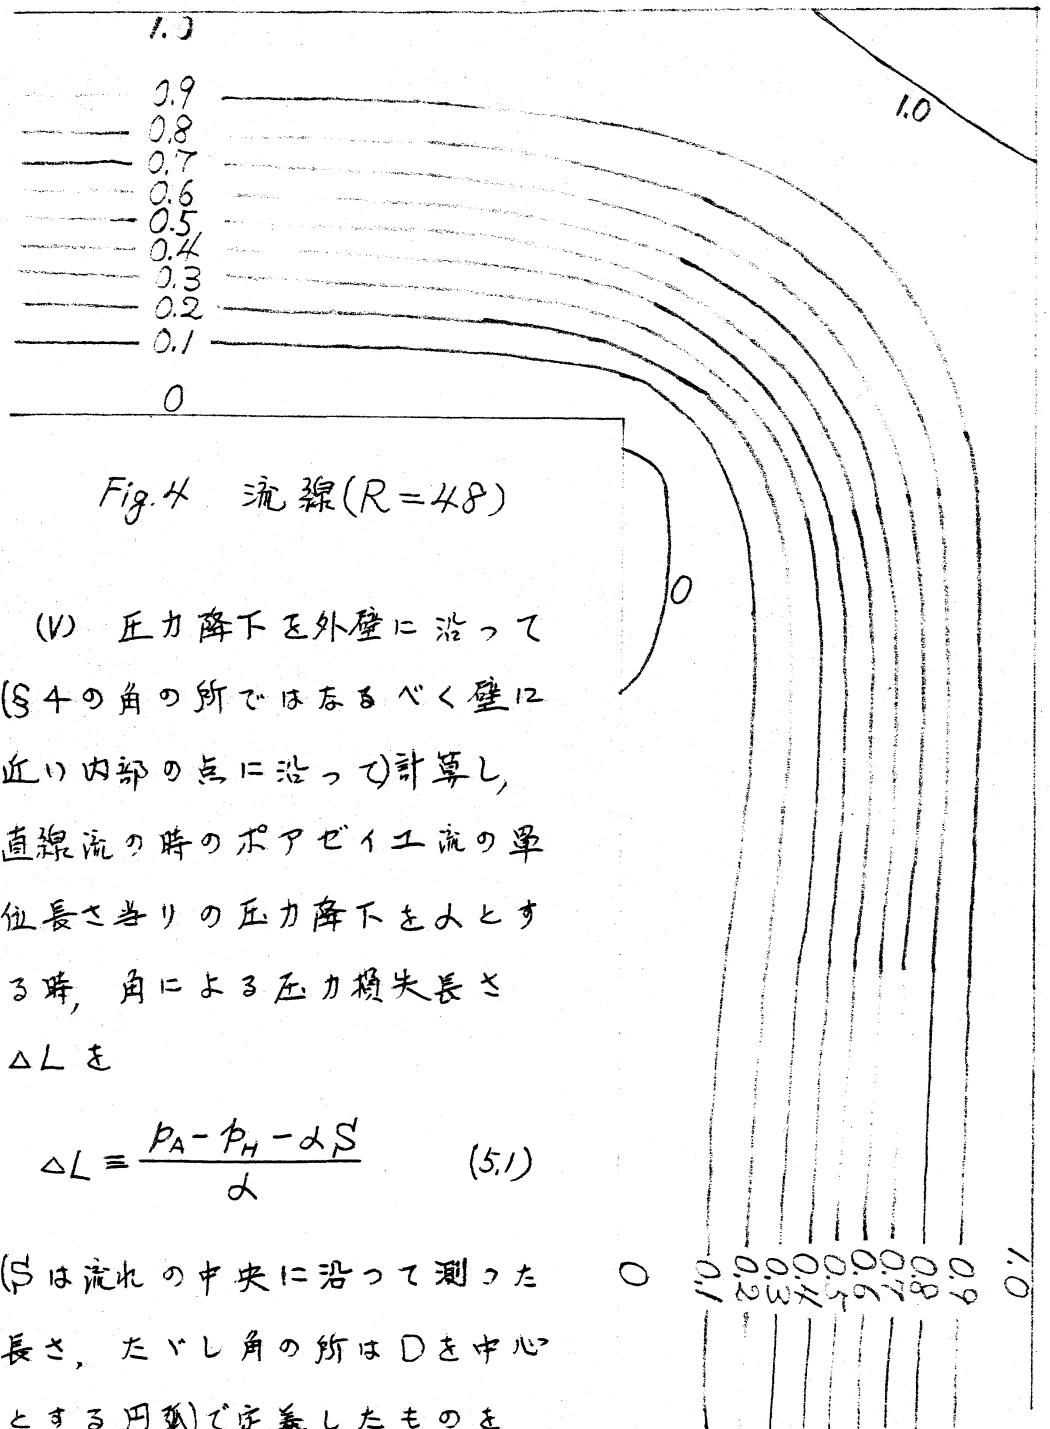 1.0
0.9
0.8
0.7
0.6
0.5
0.4
0.3
0.2
0.1
0
1.0
Fig.4 流線(R=48)
0
(V) 圧力降下を外壁に沿って
(§4の角の所ではなるべく壁に
近い内部の点に沿って)計算し,
直線流の時のポアゼイユ流の単
位長さ当りの圧力降下をαとす
る時, 角による圧力損失長さ
△Lを
△L ≡ (p_A - p_H - αS) / α (5.1)
(Sは流れの中央に沿って測った
長さ, たゞし角の所はDを中心
とする円弧)で定義したものを
0
0.1
0.2
0.3
0.4
0.5
0.6
0.7
0.8
0.9
1.0